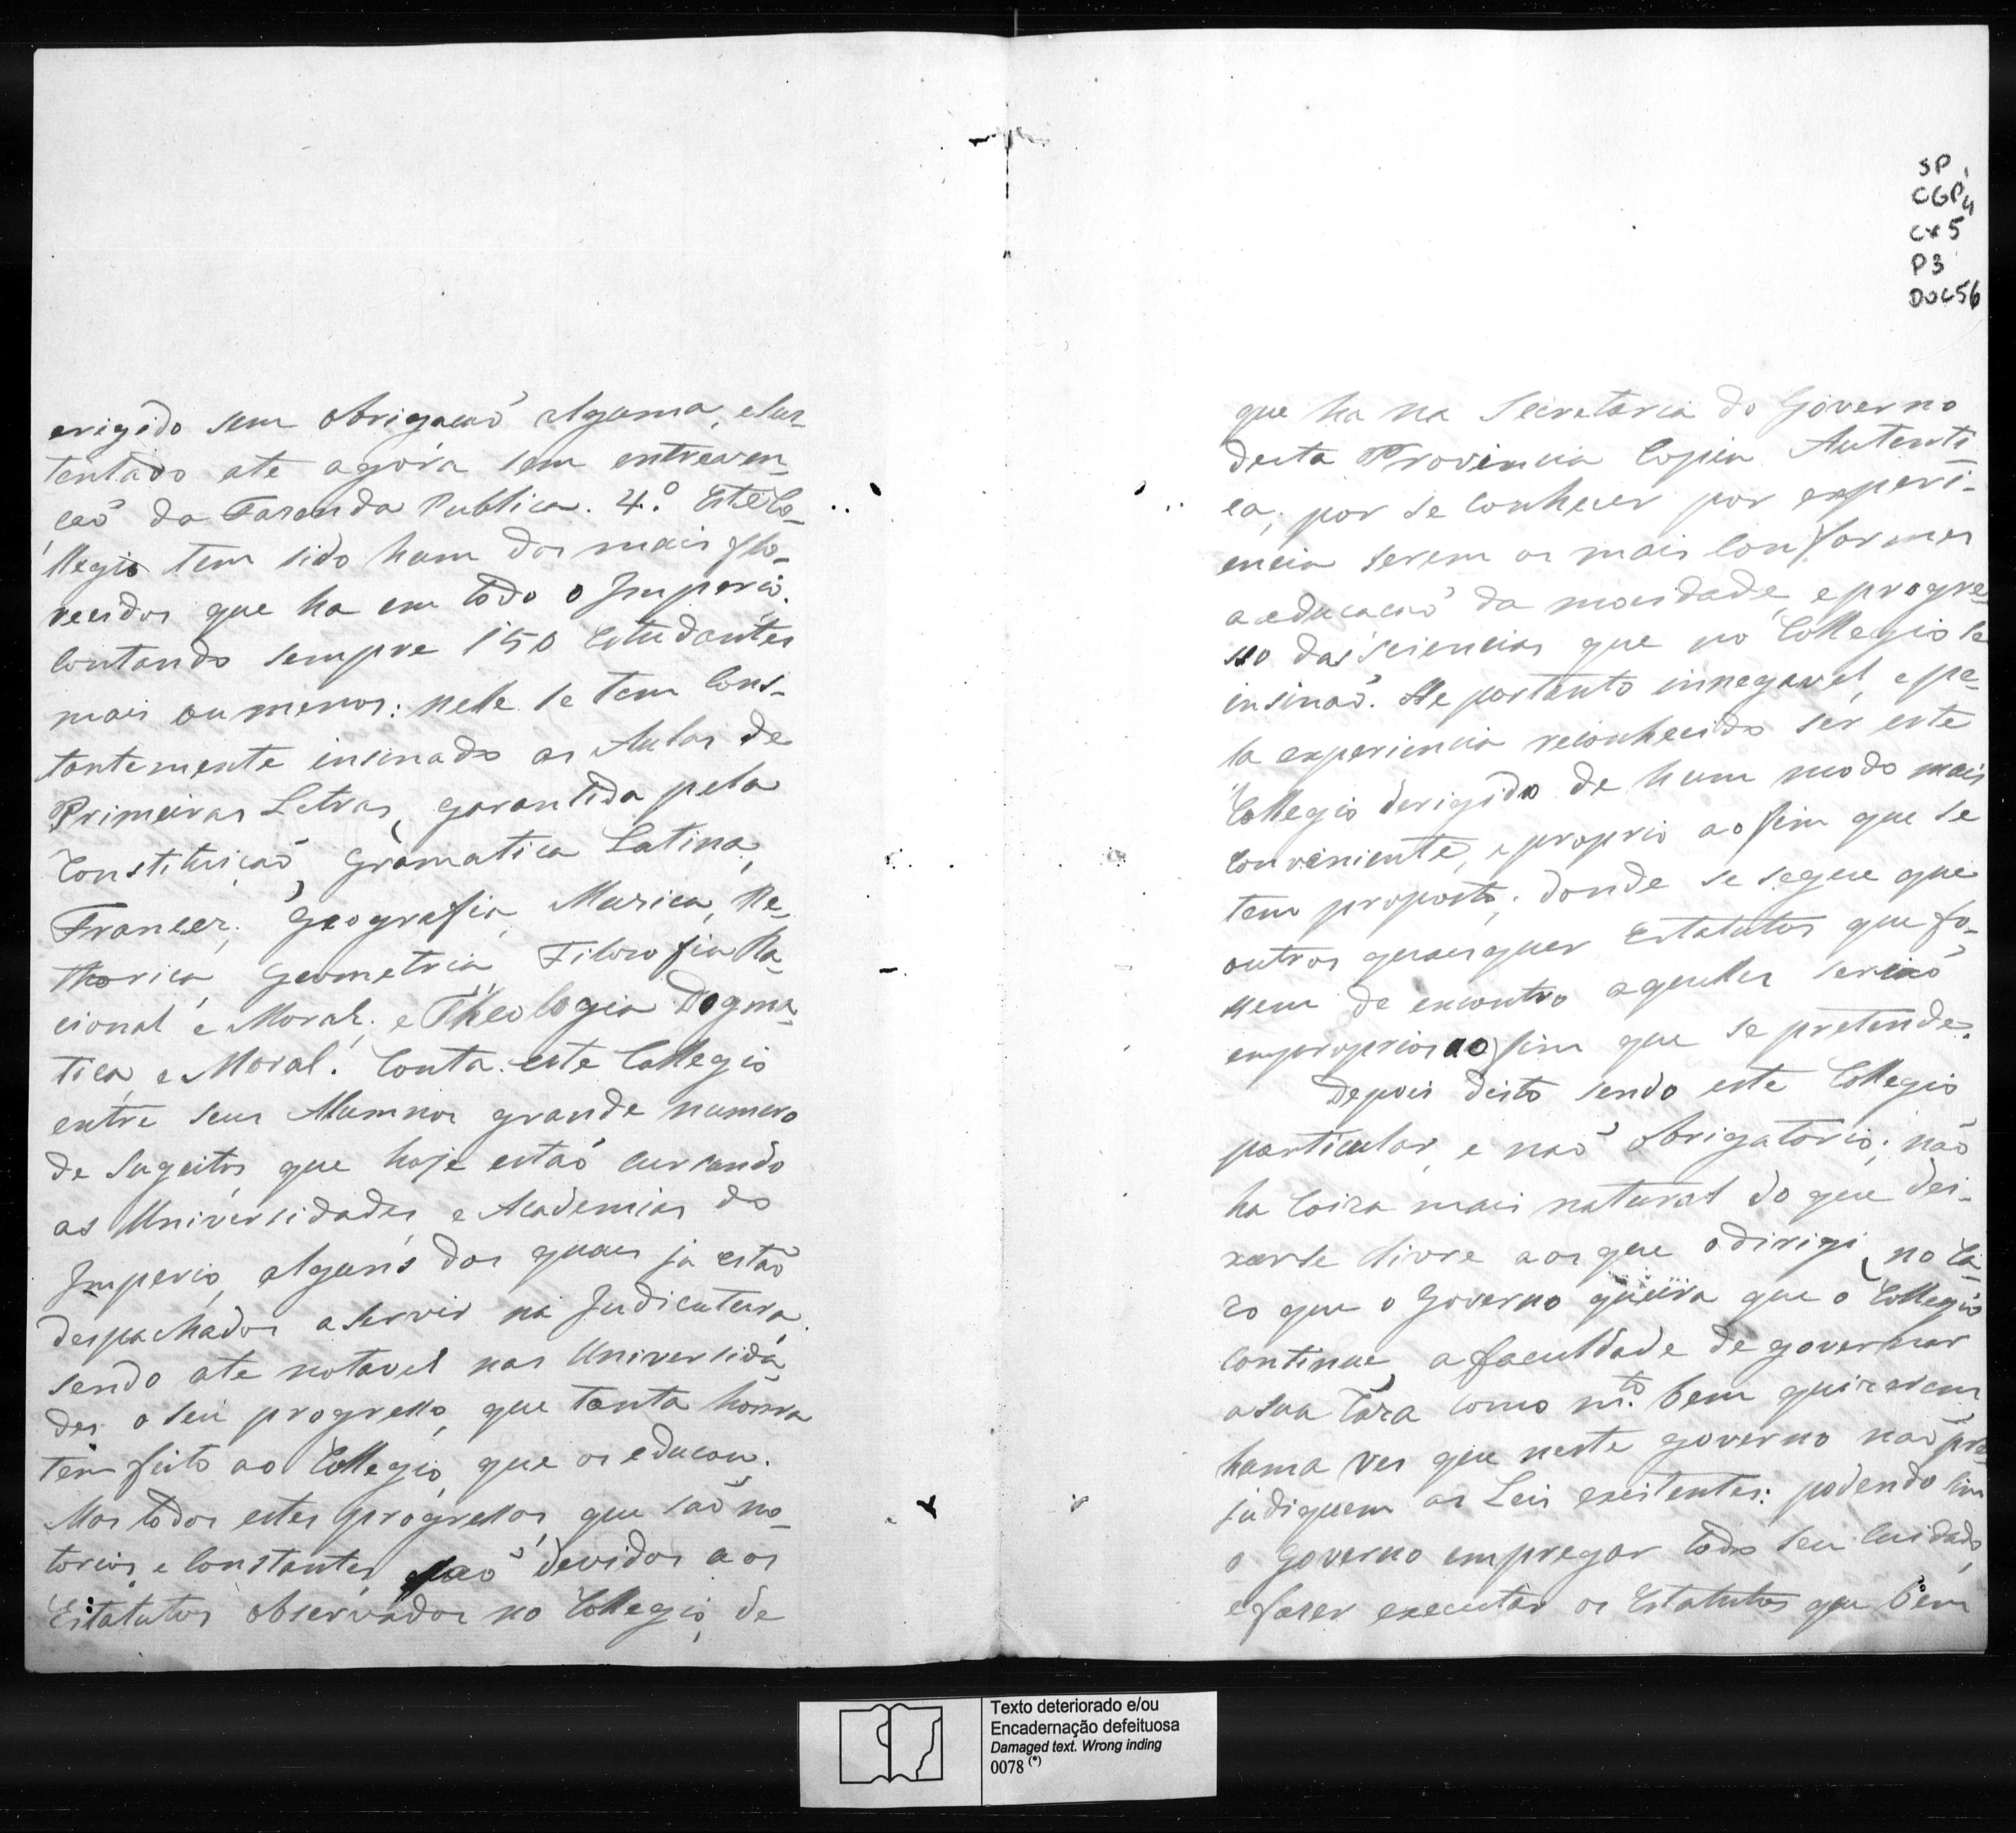 erigido sem obrigacaõ alguma, e sus-
tentado ate agora sem entreven-
çaõ da Fasenda Publica. 4.º Este Co-
llegio tem sido hum dos mais flo-
recidos que ha em todo o Imperio.
contando sempre 150 Estudantes
mais ou menos: nelle se tem cons-
tantemente insinado as Aulas de
Primeiras Letras, garantida pela
Constituiçaõ, Gramatica Latina,
Francez, Geografia, Muzica, Re-
thorica, Geometria, Filosofia Ra-
cional e Moral; e Theologia Dogma-
tica, e Moral. Conta este Collegio
entre seus Alumnos grande numero
de sugeitos, que hoje estaõ cursando
as Universidades, e Academias do
Imperio, alguns dos quaes ja estaõ
despachados a servir na Judicatura,
sendo ate notavel nas Universida-
des o seu progresso, que tanta honra
tem feito ao Collegio, que os educou.
Mas todos estes progressos, que saõ no-
torios, e constantes, saõ devidos aos
Estatutos observados no Collegio, de
SP
CGP4
cx5
P3
Doc56
que ha na Secretaria do Governo
desta Provincia Copia Autenti
ca, por se conhecer por experi-
encia serem os mais conformes
a educacaõ da mocidade, e progre-
sso das sciencias que no Collegio se
insinaõ. He portanto innegavel, e pe-
la experiencia reconhecido ser este
Collegio derigido de hum modo mais
conveniente, e proprio ao fim que se
tem proposto; donde se segue que
outros quaesquer Estatutos que fo-
ssem de encontro aquelles seriaõ
emproprios ao fim que se pretende.
Depois disto sendo este Collegio
particular, e naõ obrigatorio; naõ
ha coiza mais natural do que dei-
xarse livre aos que o dirigi, no ca-
zo que o Governo queira que o Collegio
continue, a faculdade de governar
a sua Caza como m.to bem quizerem,
huma ves que neste governo naõ pre
judiquem as Leis exestentes: podendo sim
o Governo empregar todo seu cuidado,
e faser executar os Estatutos que bem
Texto deteriorado e/ou
Encadernação defeituosa
Damaged text. Wrong inding
0078 (*)